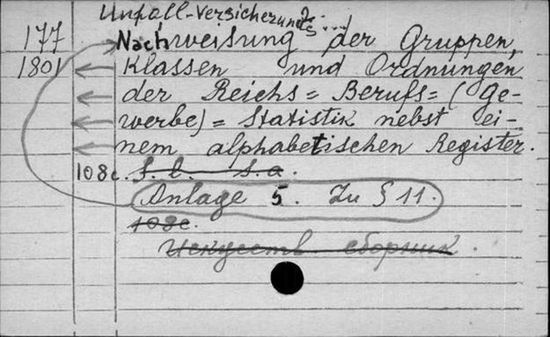 Unfall-Versicherungs ...
177 Nachweisung der Gruppen,
1801 Klassen und Ordnungen
der Reichs=Berufs=(Ge-
werbe)=Statistik nebst ei-
nem alphabetischen Register.
108c. S. l. s. a.
Anlage 5. Zu § 11.
108c.
Искусств сборник.